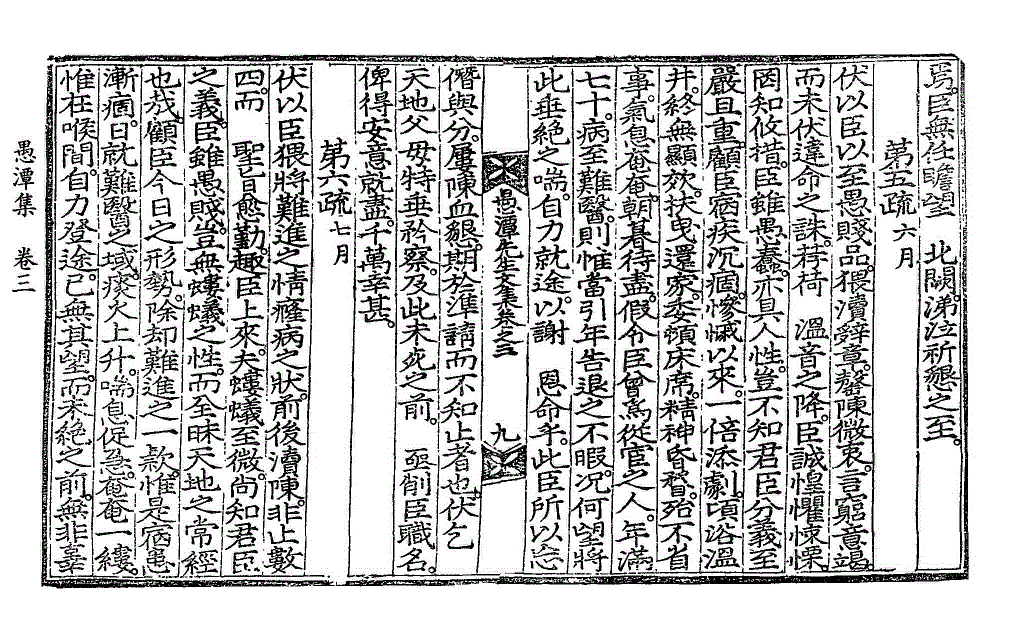 焉。臣無任瞻望　北闕。涕泣祈懇之至。
第五疏 六月
伏以臣以至愚賤品。猥瀆辭章。罄陳微衷。言窮意竭。
而未伏違命之誅。荐荷　溫音之降。臣誠惶懼悚慄。
罔知攸措。臣雖愚蠢。亦具人性。豈不知君臣分義至
嚴且重。顧臣宿疾沉痼。慘慽以來。一倍添劇。頃浴溫
井。終無顯效。扶曳還家。委頓床席。精神昏瞀。殆不省
事。氣息奄奄。朝暮待盡。假令臣曾爲從宦之人。年滿
七十。病至難醫。則惟當引年告退之不暇。況何望將
此垂絶之喘。自力就途。以謝　恩命乎。此臣所以忘
愚潭先生文集卷之三　九
僭與分。屢陳血懇。期於準請而不知止者也。伏乞
天地父母。特垂矜察。及此未死之前。　亟削臣職名。
俾得安意就盡。千萬幸甚。
第六疏 七月
伏以臣猥將難進之情。癃病之狀。前後瀆陳。非止數
四。而　聖旨愈勤。趣臣上來。夫螻蟻至微。尙知君臣
之義。臣雖愚賤。豈無螻蟻之性。而至昧天地之常經
也哉。顧臣今日之形勢。除却難進之一款。惟是病患
漸痼。日就難醫之域。痰火上升。喘息促急。奄奄一縷。
惟在喉間。自力登途。已無其望。而未絶之前。無非辜
愚潭集　卷三